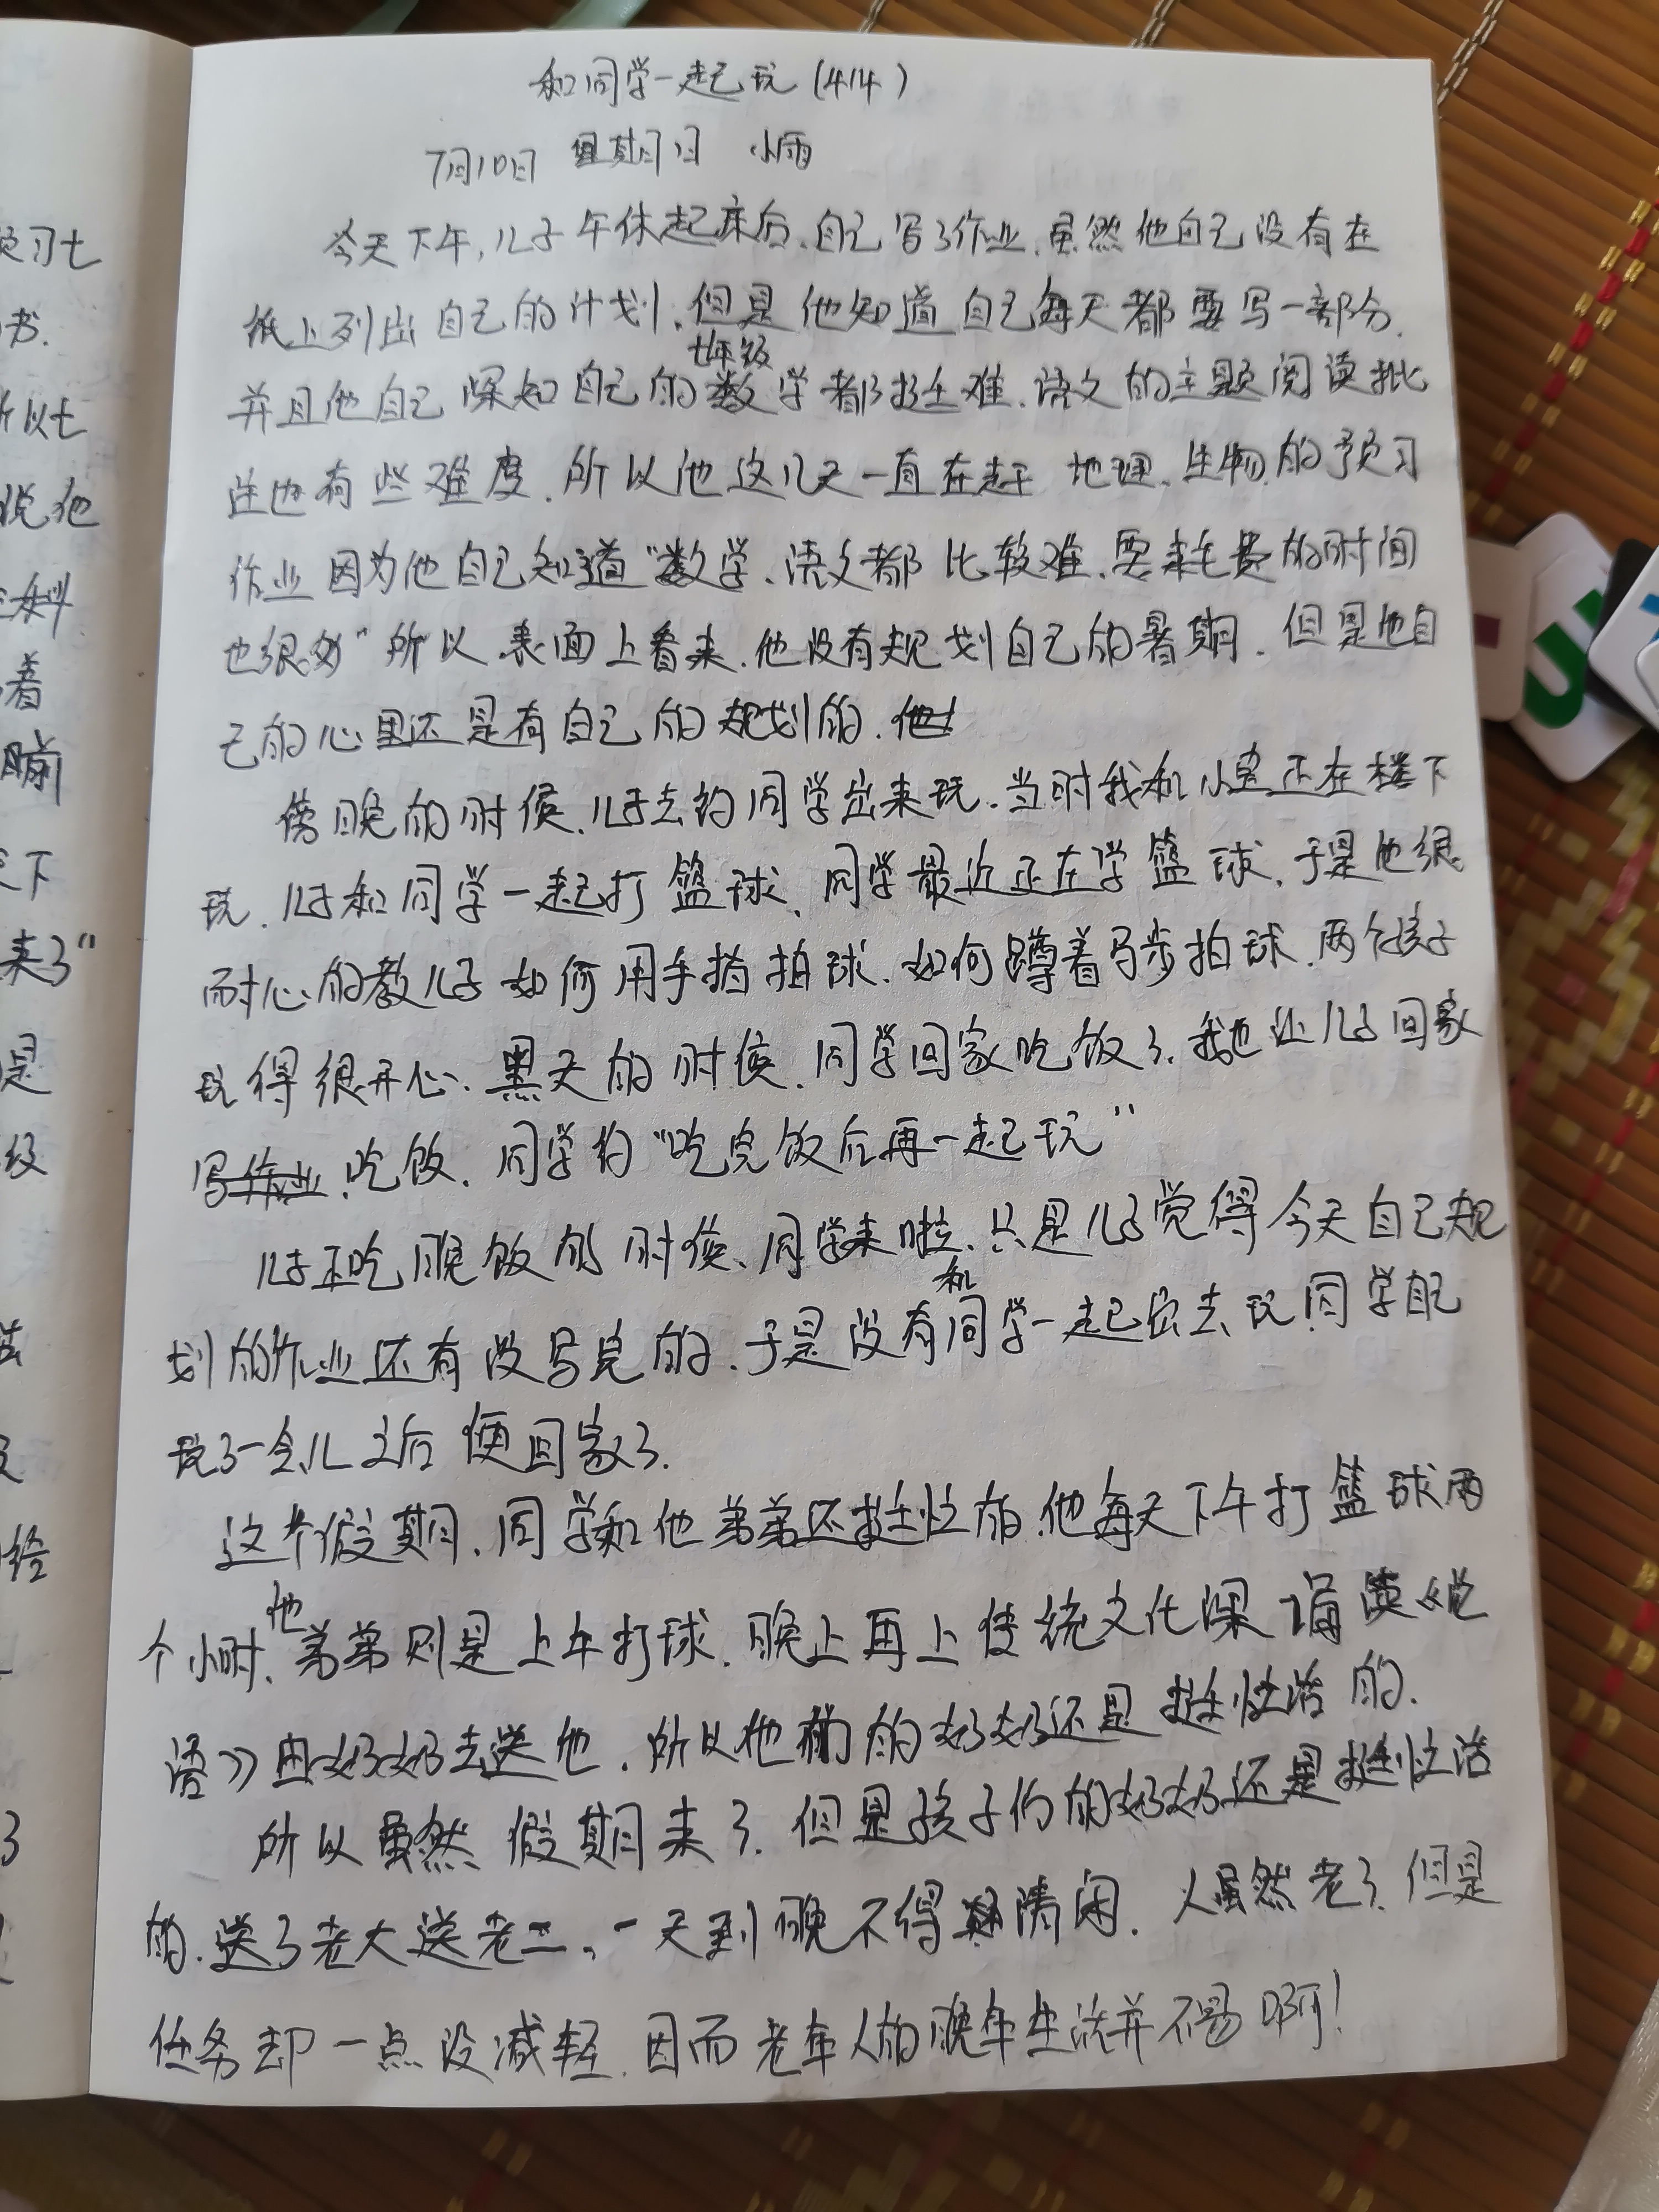 和同学一起玩(414)
7月10日 星期日 小雨
今天下午,儿子午休起床后,自己写了作业,虽然他自己没有在
纸上列出自己的计划,但是他知道自己每天都要写一部分,
七年级
并且他自己深知自己的数学都挺难,语文的主题阅读批
注也有些难度,所以他这几天一直在赶地理、生物的预习
作业因为他自己知道"数学、语文都比较难,要耗费的时间
也很多"所以表面上看来,他没有规划自己的暑期,但是他自
己的心里还是有自己的规划的.
傍晚的时候,儿子去约同学出来玩,当时我和小宝正在楼下
玩,儿子和同学一起打篮球,同学最近正在学篮球,于是他很
耐心的教儿子如何用手指拍球,如何蹲着马步拍球,两个孩子
玩得很开心,黑天的时候,同学回家吃饭了,我也让儿子回家
写作业,吃饭,同学约"吃完饭后再一起玩"
儿子正吃晚饭的时候,同学来啦,只是儿子觉得今天自己规
和
划的作业还有没写完的,于是没有同学一起出去玩,同学自己
玩了一会儿之后便回家了.
这个假期,同学和他弟弟还挺忙的,他每天下午打篮球两
他
个小时,弟弟则是上午打球,晚上再上传统文化课诵读《论
语》由奶奶去送他,所以他们的奶奶还是挺忙活的.
所以虽然假期来了,但是孩子们的奶奶还是挺忙活
的,送了老大送老二,一天到晚不得清闲,人虽然老了,但是
任务却一点没减轻,因而老年人的晚年生活并不易啊!
预习七
书.
所以七
说他
着
天下
来了"
是
级
给
了